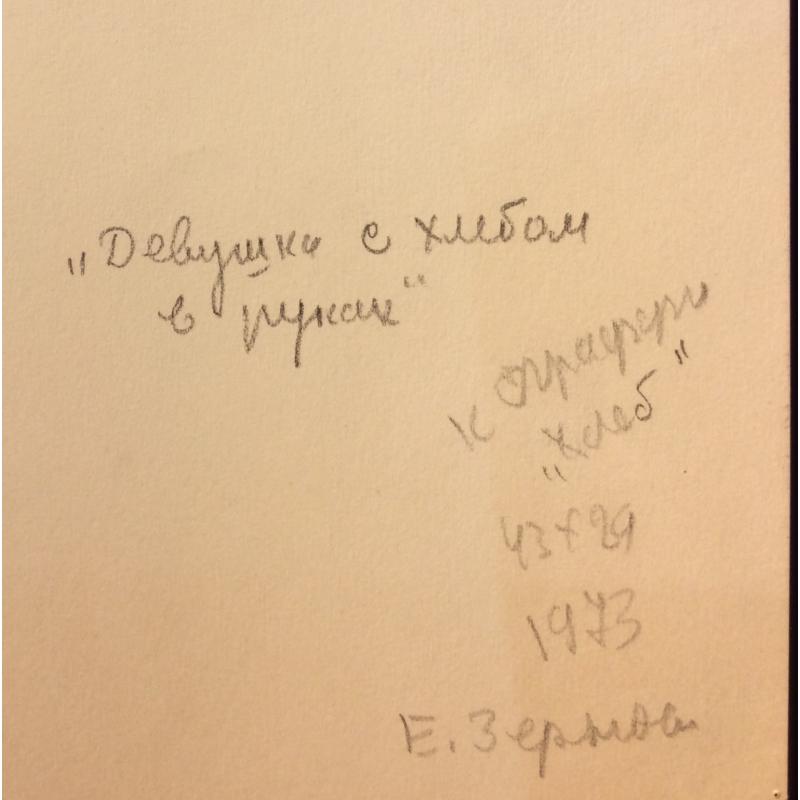 „Девушка с хлебом
в руках"
к
„Хлеб"
43х29
1973
Е. Зернова